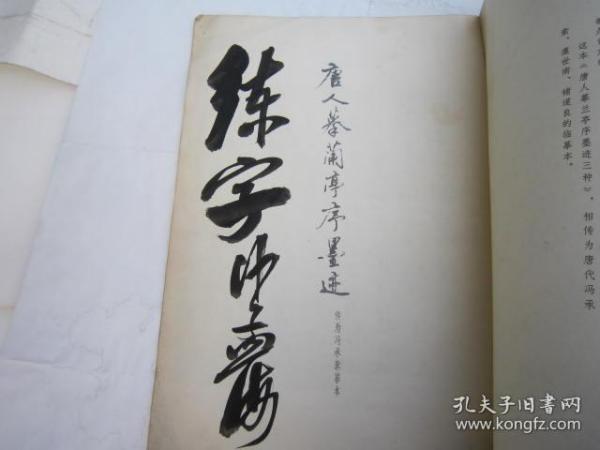 这本《唐人摹兰亭序墨迹三种》，相传为唐代冯承
素、虞世南、褚遂良的临摹本。
唐人摹蘭亭序墨迹
传为冯承素摹本
练字
孔夫子旧书网
www.kongfz.com